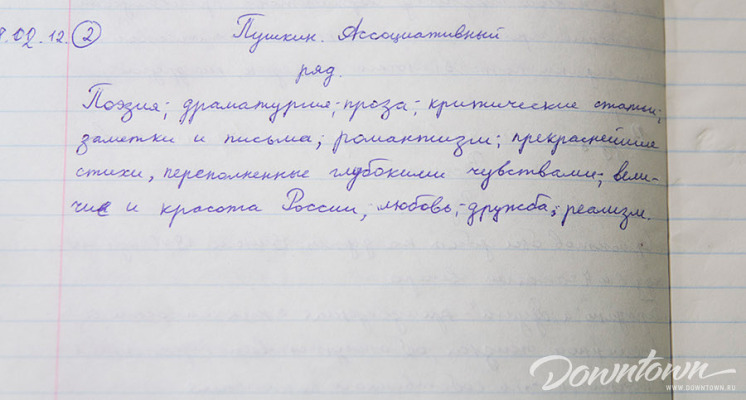 9.02.12. 2 Пушкин. Ассоциативный
ряд.
Поэзия; драматургия; проза; критические статьи;
заметки и письма; романтизм; прекраснейшие
стихи, переполненные глубокими чувствами; вели-
чие и красота России; любовь; дружба; реализм.
Downtown
WWW.DOWNTOWN.RU